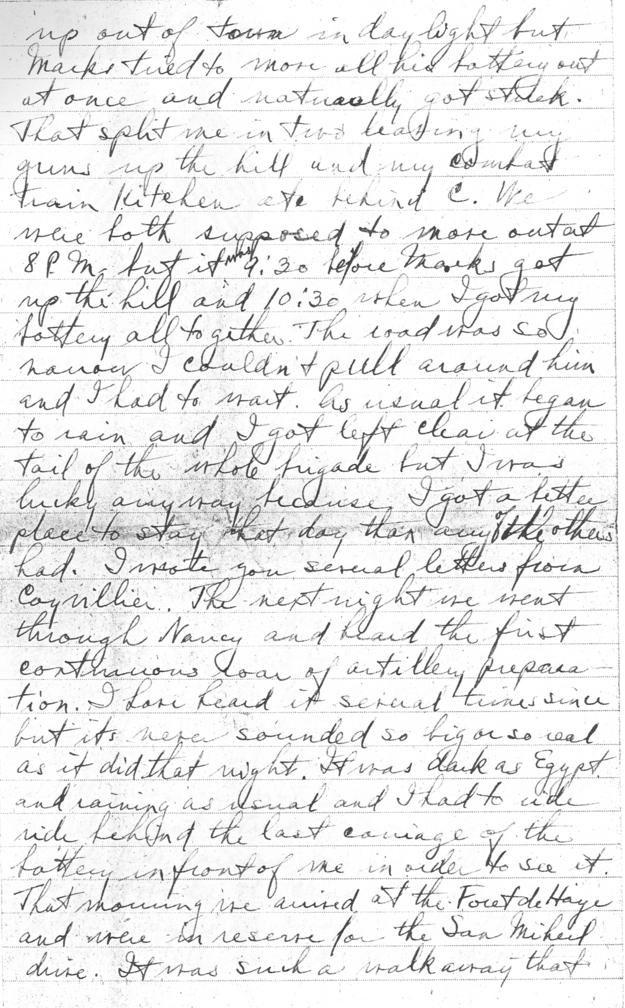 up out of town in daylight but
Marks tried to move all his battery out
at once and naturally got stuck.
That split me in two leaving my
guns up the hill and my combat
train Kitchen etc behind C. We
were both supposed to move out at
8 P.M. but it was 9:30 before Marks got
up the hill and 10:30 when I got my
battery all together. The road was so
narrow I couldn't pull around him
and I had to wait. As usual it began
to rain and I got left clear at the
tail of the whole brigade but I was
lucky anyway because I got a better
place to stay that day than any of the others
had. I wrote you several letters from
Coyvillier. The next night we went
through Nancy and heard the first
continuous roar of artillery prepara-
tion. I have heard it several times since
but its never sounded so big or so real
as it did that night. It was dark as Egypt
and raining as usual and I had to ride
ride behind the last carriage of the
battery in front of me in order to see it.
That morning we arrived at the Foret de Haye
and were in reserve for the San Mihiel
drive. It was such a walkaway that